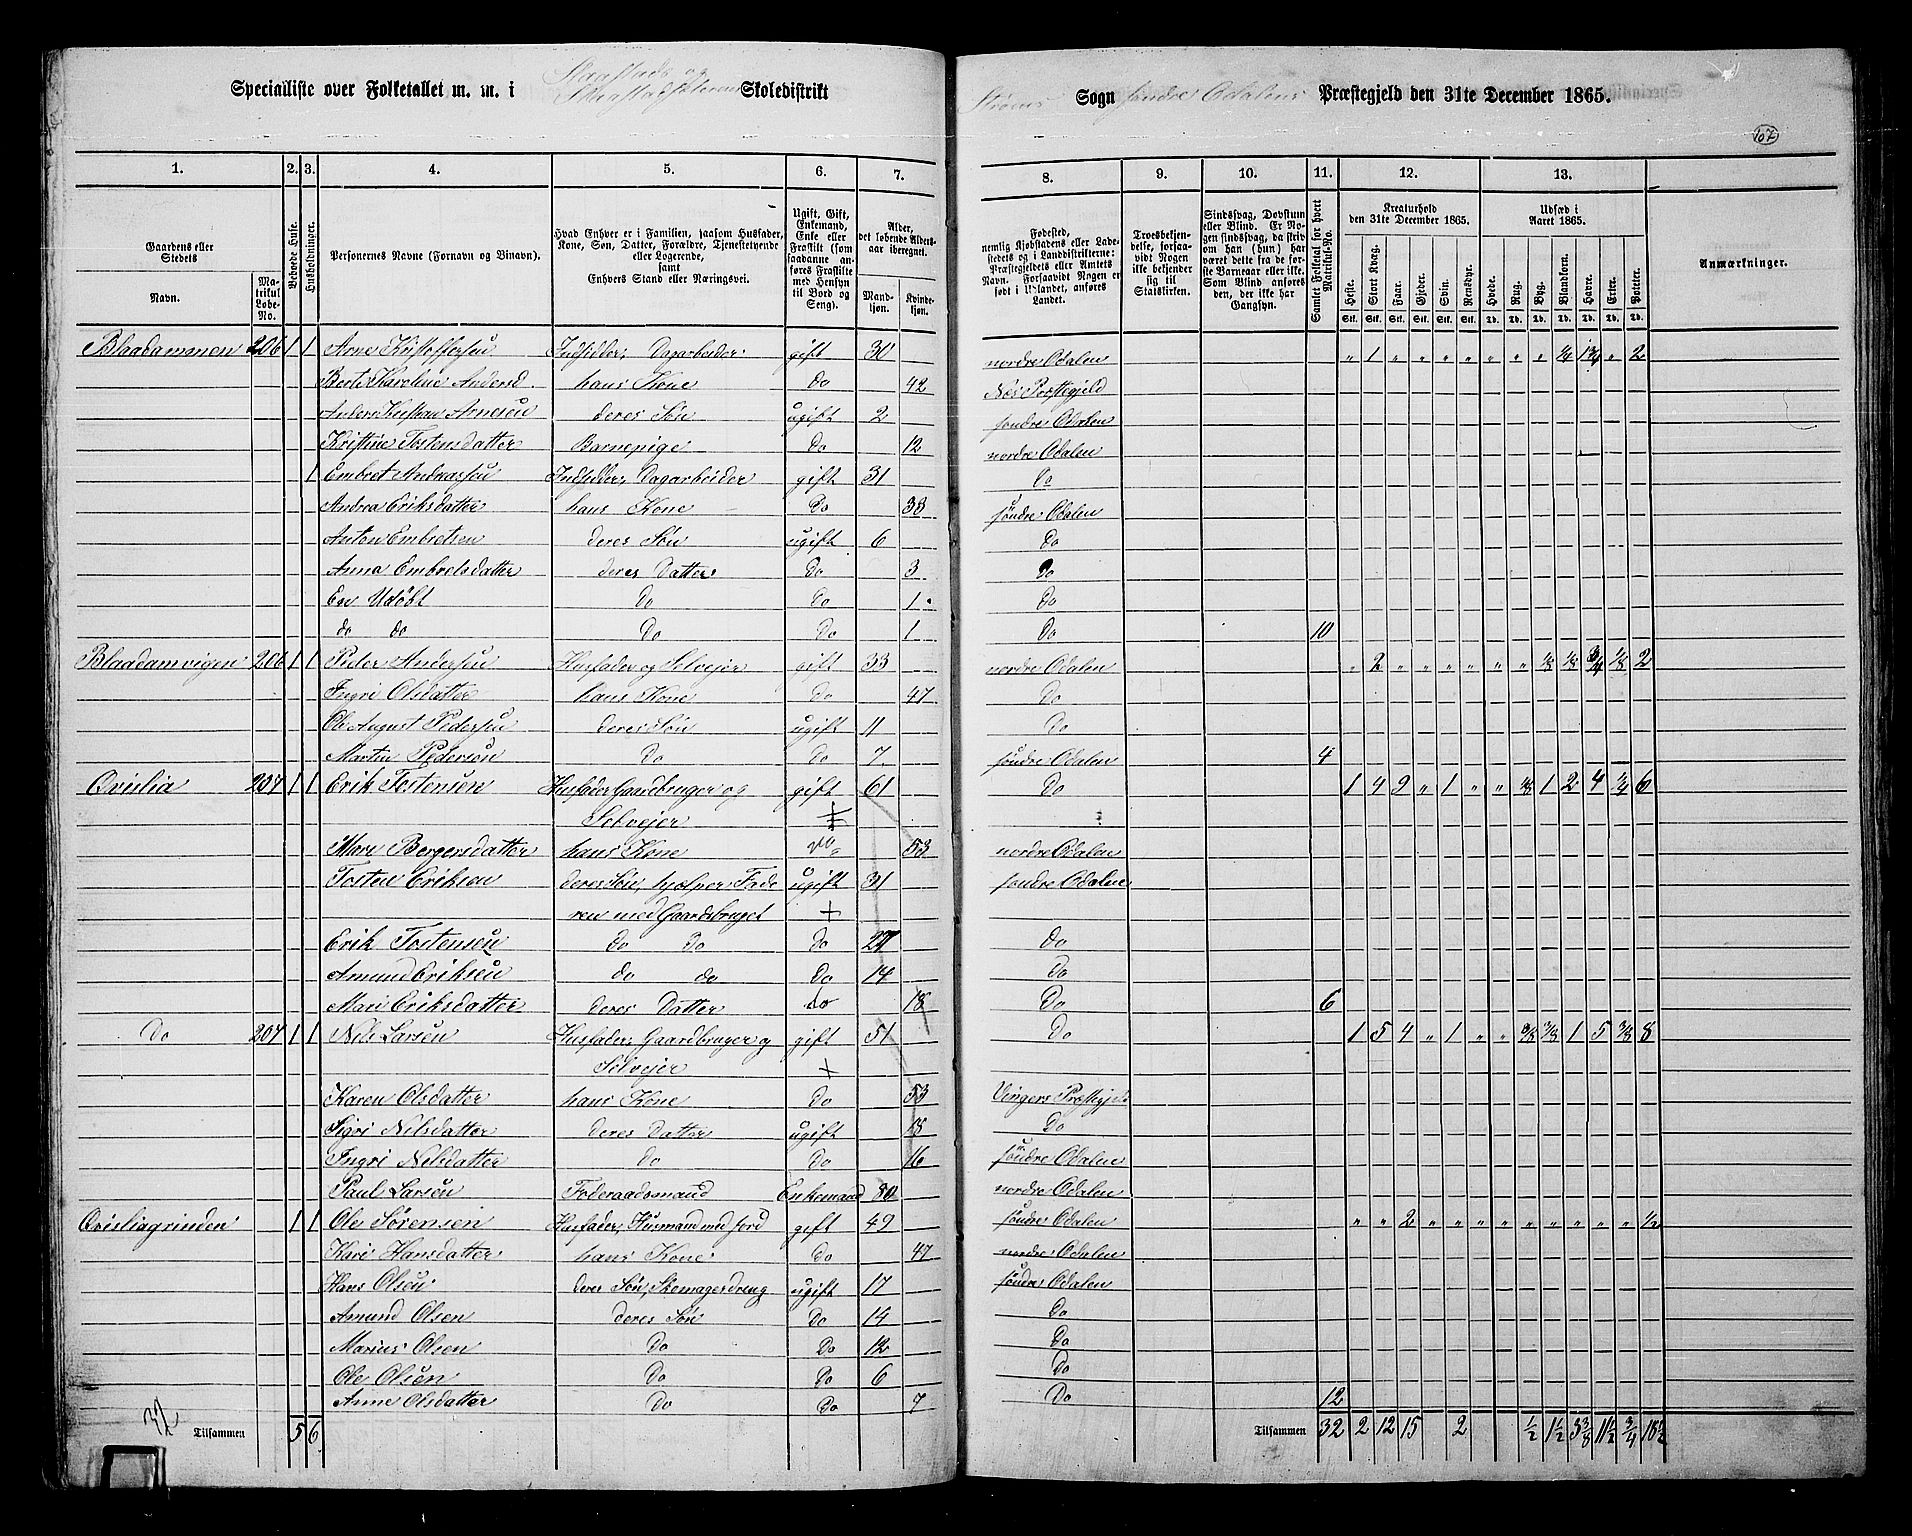 Specialliste over Folketallet m. m. i Skaastads og Skoledistrikt
Sogn søndre Odalens Præstegjeld den 31te December 1865.
207
1. 2. 3. 4. 5. 6. 7. 8. 9. 10. 11. 12. 13.
Gaardens eller Stedets
Navn.
Matrikul Løbe-No.
Beboede Huse.
Husholdninger.
Personernes Navne (Fornavn og Binavn).
Hvad Enhver er i Familien, saasom Husfader, Kone, Søn, Datter, Forældre, Tjenestetyende eller Logerende, samt Enhvers Stand eller Næringsvei.
Ugift, Gift, Enkemand, Enke eller Fraskilt (som saadanne anføres Fraskilte med Hensyn til Bord og Seng).
Alder, det løbende Aldersaar iberegnet.
Mandkjøn.
Kvindekjøn.
Fødested, nemlig Kjøbstadens eller Ladestedets og i Landdistrikterne: Præstegjeldets eller Amtets Navn. Forsaavidt Nogen er født i Udlandet, anføres Landet.
Troesbekjendelse, forsaavidt Nogen ikke bekjender sig til Statskirken.
Sindssvag, Døvstum eller Blind. Er Nogen sindssvag, da skriv om han (hun) har været dette fra de første Barneaar eller ikke. Som Blind anføres den, der ikke har Gangsyn.
Samlet Folketal for hvert Matrikul-No.
Kreaturhold den 31te December 1865.
Heste. Stort Kvæg. Faar. Gjeder. Svin. Rensdyr.
Udsæd i Aaret 1865.
Hvede. Rug. Byg. Blandkorn. Havre. Erter. Poteter.
Anmærkninger.
Blaadammen 206 1 1 Arne Kristoffersen Indsidder, Dagarbeider gift 30 nordre Odalen " 1 " " " " " " " 2
Berte Karoline Andersd. hans Kone Do 42 Næs Præstegjeld
Anders Kristian Arnesen deres Søn ugift 2 søndre Odalen
Kristine Tostensdatter Barnepige Do 12 nordre Odalen
1 Embret Andreassen Indsidder, Dagarbeider gift 31 Do
Andrea Eriksdatter hans Kone Do 38 søndre Odalen
Anton Embretsen deres Søn ugift 6 Do
Anna Embretsdatter deres Datter Do 3 Do
En Udøbt Do Do 1 Do
do do Do Do 1 Do 10
Blaadamvigen 206 1 1 Peder Andersen Husfader og Selveier gift 33 nordre Odalen " 2 " " " " " " 1/8 1/8 3/4 1/8 2
Ingri Olsdatter hans Kone Do 47 Do
Ole August Pedersen deres Søn ugift 11 Do
Martin Pedersøn Do Do 7 søndre Odalen 4
Qvislia 207 1 1 Erik Tostensen Husfader Gaardbruger og gift 61 Do 1 4 9 " 1 " " 1 2 4 6
Selveier +
Mari Bergersdatter hans Kone Do 53 nordre Odalen
Tosten Eriksen deres Søn, hjelper Fade ugift 31 søndre Odalen
ren med Gaardsbruget +
Erik Tostensen do Do Do 27 Do
Amund Eriksen do do Do 14 Do
Mari Eriksdatter deres Datter Do 18 Do 6
Do 207 1 1 Nils Larsen Husfader, Gaardbruger og gift 51 Do 1 5 4 " 1 " " 3/8 3/8 1 5 3/8 8
Selveier +
Karen Olsdatter hans Kone Do 53 Vingers Præstegjeld
Sigri Nilsdatter deres Datter ugift 18 Do
Ingri Nilsdatter do Do 16 søndre Odalen
Paul Larsen Føderaadsmand Enkemand 80 nordre Odalen
Qvisliagrinden 1 1 Ole Sørensen Husfader, Husmand med Jord gift 49 søndre Odalen " " 2 " " " " " " " " " 1/2
Kari Hansdatter hans Kone Do 47 nordre Odalen
Hans Olsen deres Søn, Skomagerdreng ugift 17 søndre Odalen
Amund Olsen deres Søn Do 14 Do
Marius Olsen Do Do 12 Do
Ole Olsen Do Do 6 Do
Anne Olsdatter Do Do 7 Do 12
32
Tilsammen 5 6
Tilsammen 32 2 12 15 2 1/2 1 1/2 3 3/8 11 1/2 3/4 18 1/2